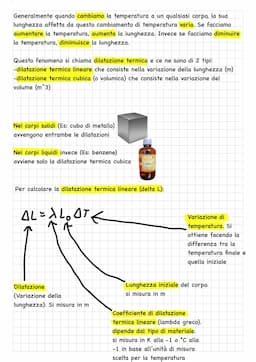 Generalmente quando cambiamo la temperatura a un qualsiasi corpo, la sua
lunghezza affetta da questo cambiamento di temperatura varia. Se facciamo
aumentare la temperatura, aumenta la lunghezza. Invece se facciamo diminuire
la temperatura, diminuisce la lunghezza.
Questo fenomeno si chiama dilatazione termica e ce ne sono di 2 tipi
-dilatazione termica lineare che consiste nella variazione della lunghezza (m)
-dilatazione termica cubica (o volumica) che consiste nella variazione del
volume (m^3)
Nei corpi solidi (Es: cubo di metallo)
avvengono entrambe le dilatazioni
Nei corpi liquidi invece (Es: benzene)
avviene solo la dilatazione termica cubica
Per calcolare la dilatazione termica lineare (delta L):
ΔL = λ L₀ ΔT
Variazione di
temperatura. Si
ottiene facendo la
differenza tra la
temperatura finale e
quella iniziale
Dilatazione
(Variazione della
lunghezza). Si misura in m
Lunghezza iniziale del corpo.
si misura in m
Coefficiente di dilatazione
termica lineare (lambda greco).
dipende dal tipo di materiale.
si misura in K alla -1 o °C alla
-1 in base all'unità di misura
scelta per la temperatura